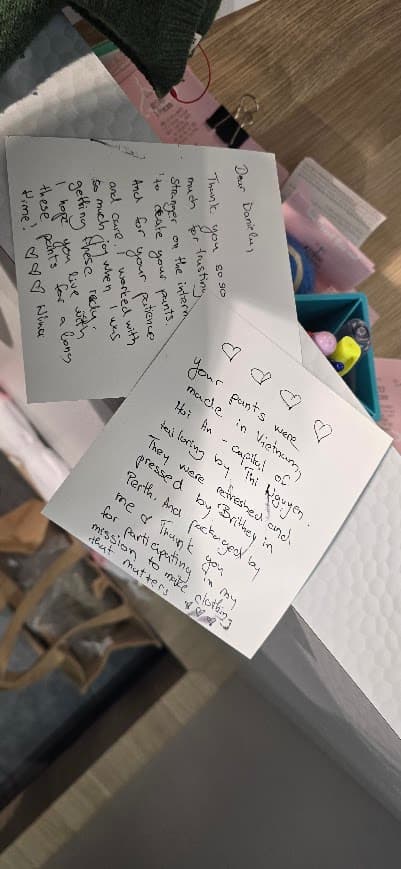 Dear Daniela,
Thank you so so
much for trusting
stranger on the intern
to create your pants.
And for your patience
and care. I worked with
so much joy when I was
getting these ready.
I hope you live with
these pants for a long
time! ♡ ♡ ♡ Nina
♡ ♡ ♡ ♡
your pants were
made in Vietnam,
Hoi An - capital of
tailoring by Thi Nguyen.
They were refreshed and
pressed by Brittney in
Perth. And packaged by
me & Thank you
for participating in my
mission to make clothing
that matters ♡ ♡ ♡